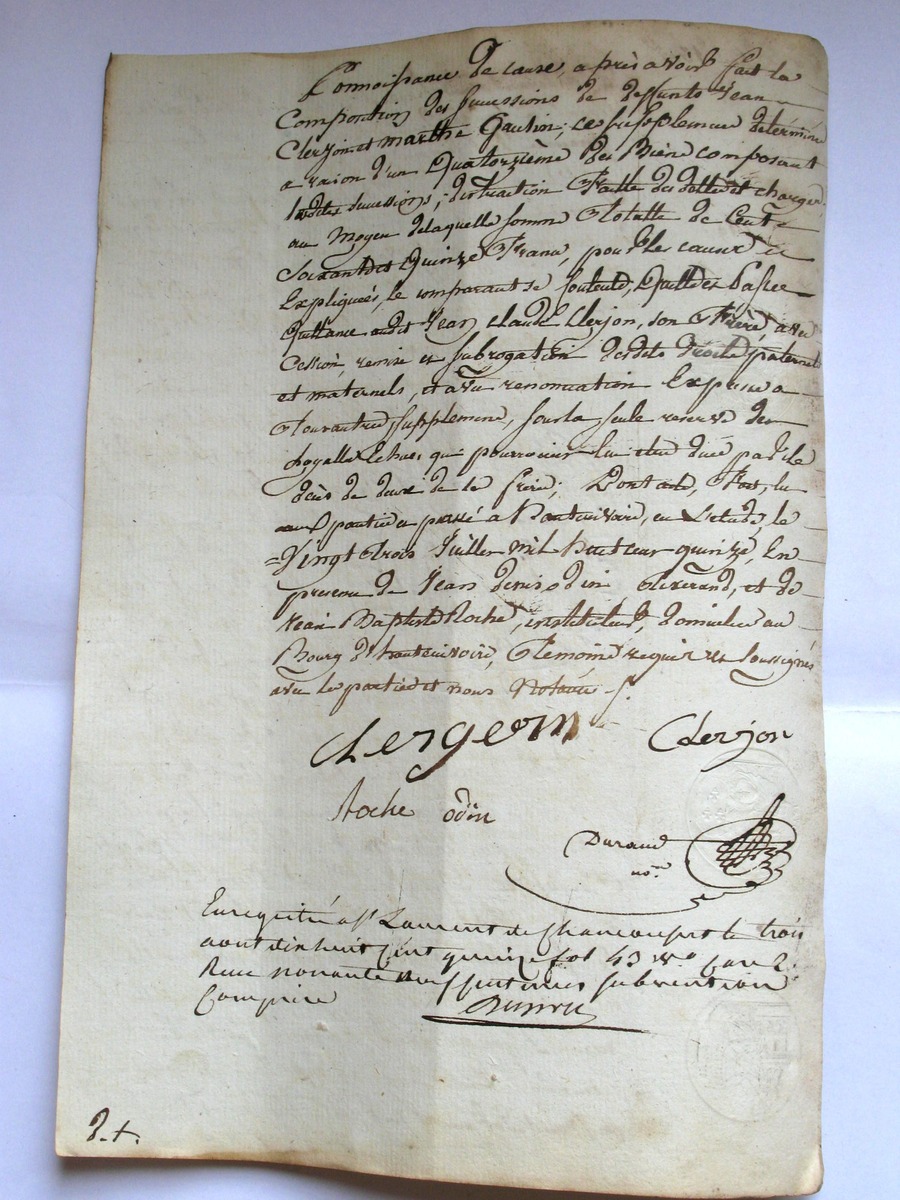 Connoissance de cause, après avoir fait la
Composition des Successions de deffunts Jean
Clerjon et marthe Gaulin; ce supplement déterminé
a raison d'un Quatorzième des Biens composant
lesdites successions; distraction Faitte des dettes et charges,
au moyen de laquelle somme Totalle de Cent
Soixante et Quinze Francs, pour les causes
Expliquées, le comparant se contente, Quitte et Passe
Quittance audit Jean Claude Clerjon, son Frère, avec
Cession, remise et subrogation desdits droits paternels
et maternels, et avec renonciation Expresse a
Tout autre supplement, sous la seule reserve des
Loyalles Echues que pourroient lui etre dues par le
décès de deux de ses frères; Dont acte, Fait, lu
aux parties et passé a en L'etude, le
Vingt Trois Juillet mil huit cent quinze, En
presence de Jean denis odin Tixerand, et de
Jean Baptiste Roche, instituteur, domicilies au
Bourg d' Temoins requis et soussignés
avec les parties et nous Notaire
Clergeon Clerjon
Roche odin
Durand
no.re
Enregistré a st Laurent de Chamousset le trois
aout dix huit Cent quinze fol 43 v.o Case 2.
Reçu nonante neuf centimes subvention
Comprise